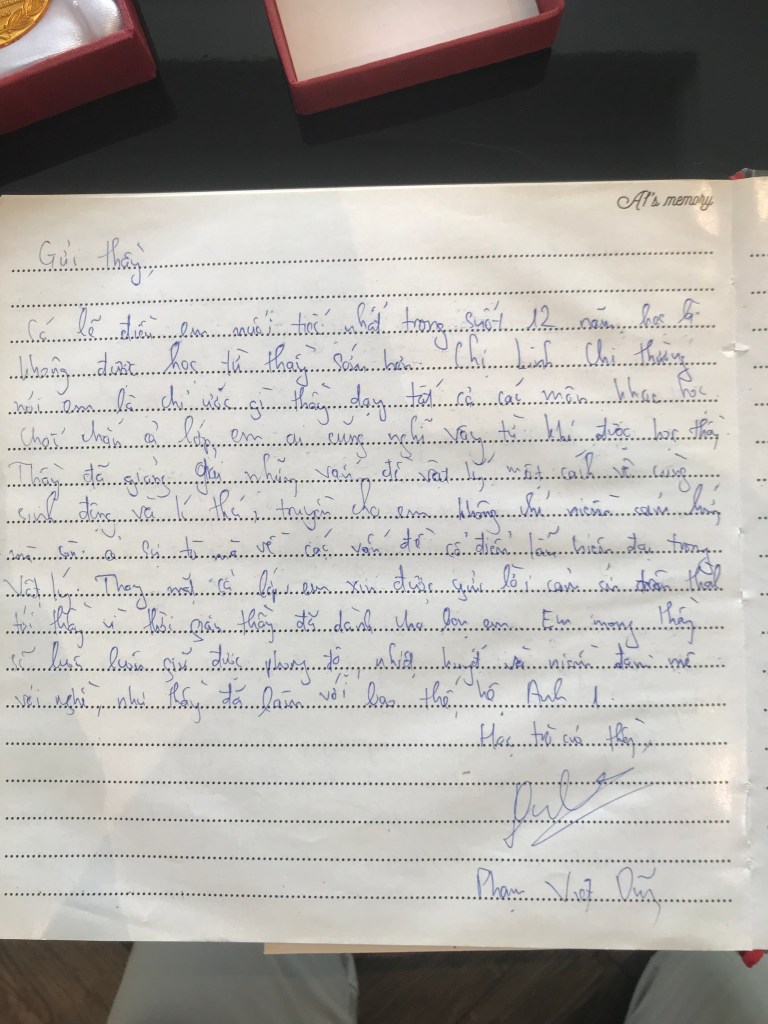 A1's memory
Gửi thầy,
Có lẽ điều em nuối tiếc nhất trong suốt 12 năm học là
không được học từ thầy sớm hơn. Chị Linh Chi thường
nói em là chị ước gì thầy dạy tất cả các môn khoa học.
Chắc hẳn cả lớp, em ai cũng nghĩ vậy từ khi được học thầy.
Thầy đã giảng giải những vấn đề vật lý một cách vô cùng
sinh động và lí thú, truyền cho em không chỉ niềm cảm hứng
mà còn cả sự tò mò về các vấn đề cổ điển lẫn hiện đại trong
Vật lý. Thay mặt cả lớp, em xin được gửi lời cảm ơn chân thành
tới thầy vì thời gian thầy đã dành cho bọn em. Em mong thầy
sẽ luôn luôn giữ được phong độ, nhiệt huyết và niềm đam mê
với nghề, như thầy đã làm với bao thế hệ Anh 1.
Học trò của thầy,
Phạm Việt Dũng